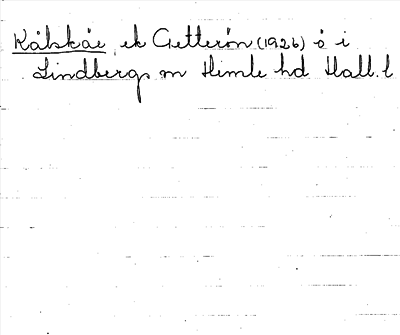 Kålskåe, ek Getterön (1926) ö i
Lindbergs sn Himle hd Hall. l